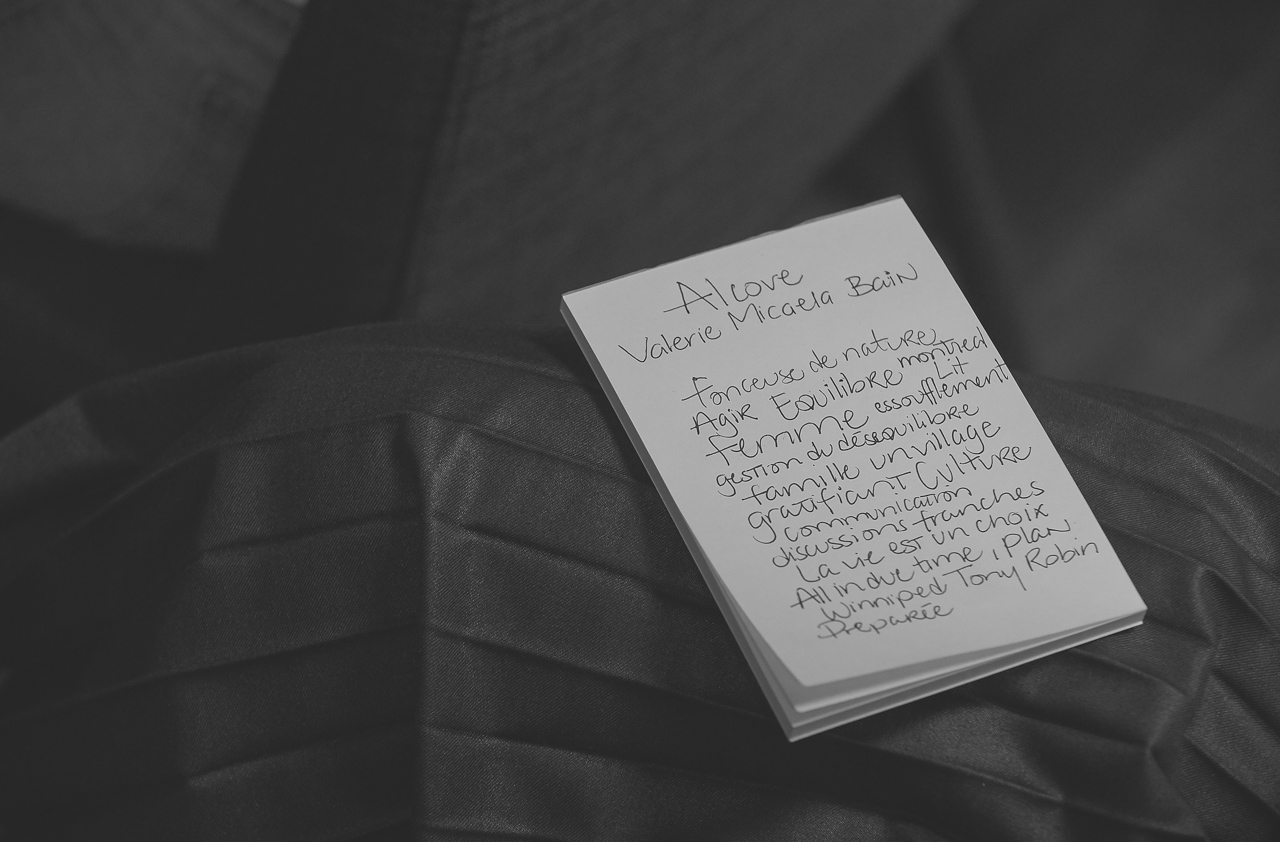 Alcove
Valerie Micaela Bain
fonceuse de nature
Agir Equilibre montreal
Lit
femme essoufflement
gestion du déséquilibre
famille un village
gratifiant Culture
communication
discussions franches
La vie est un choix
All in due time, Plan
Winniped Tony Robin
Préparée